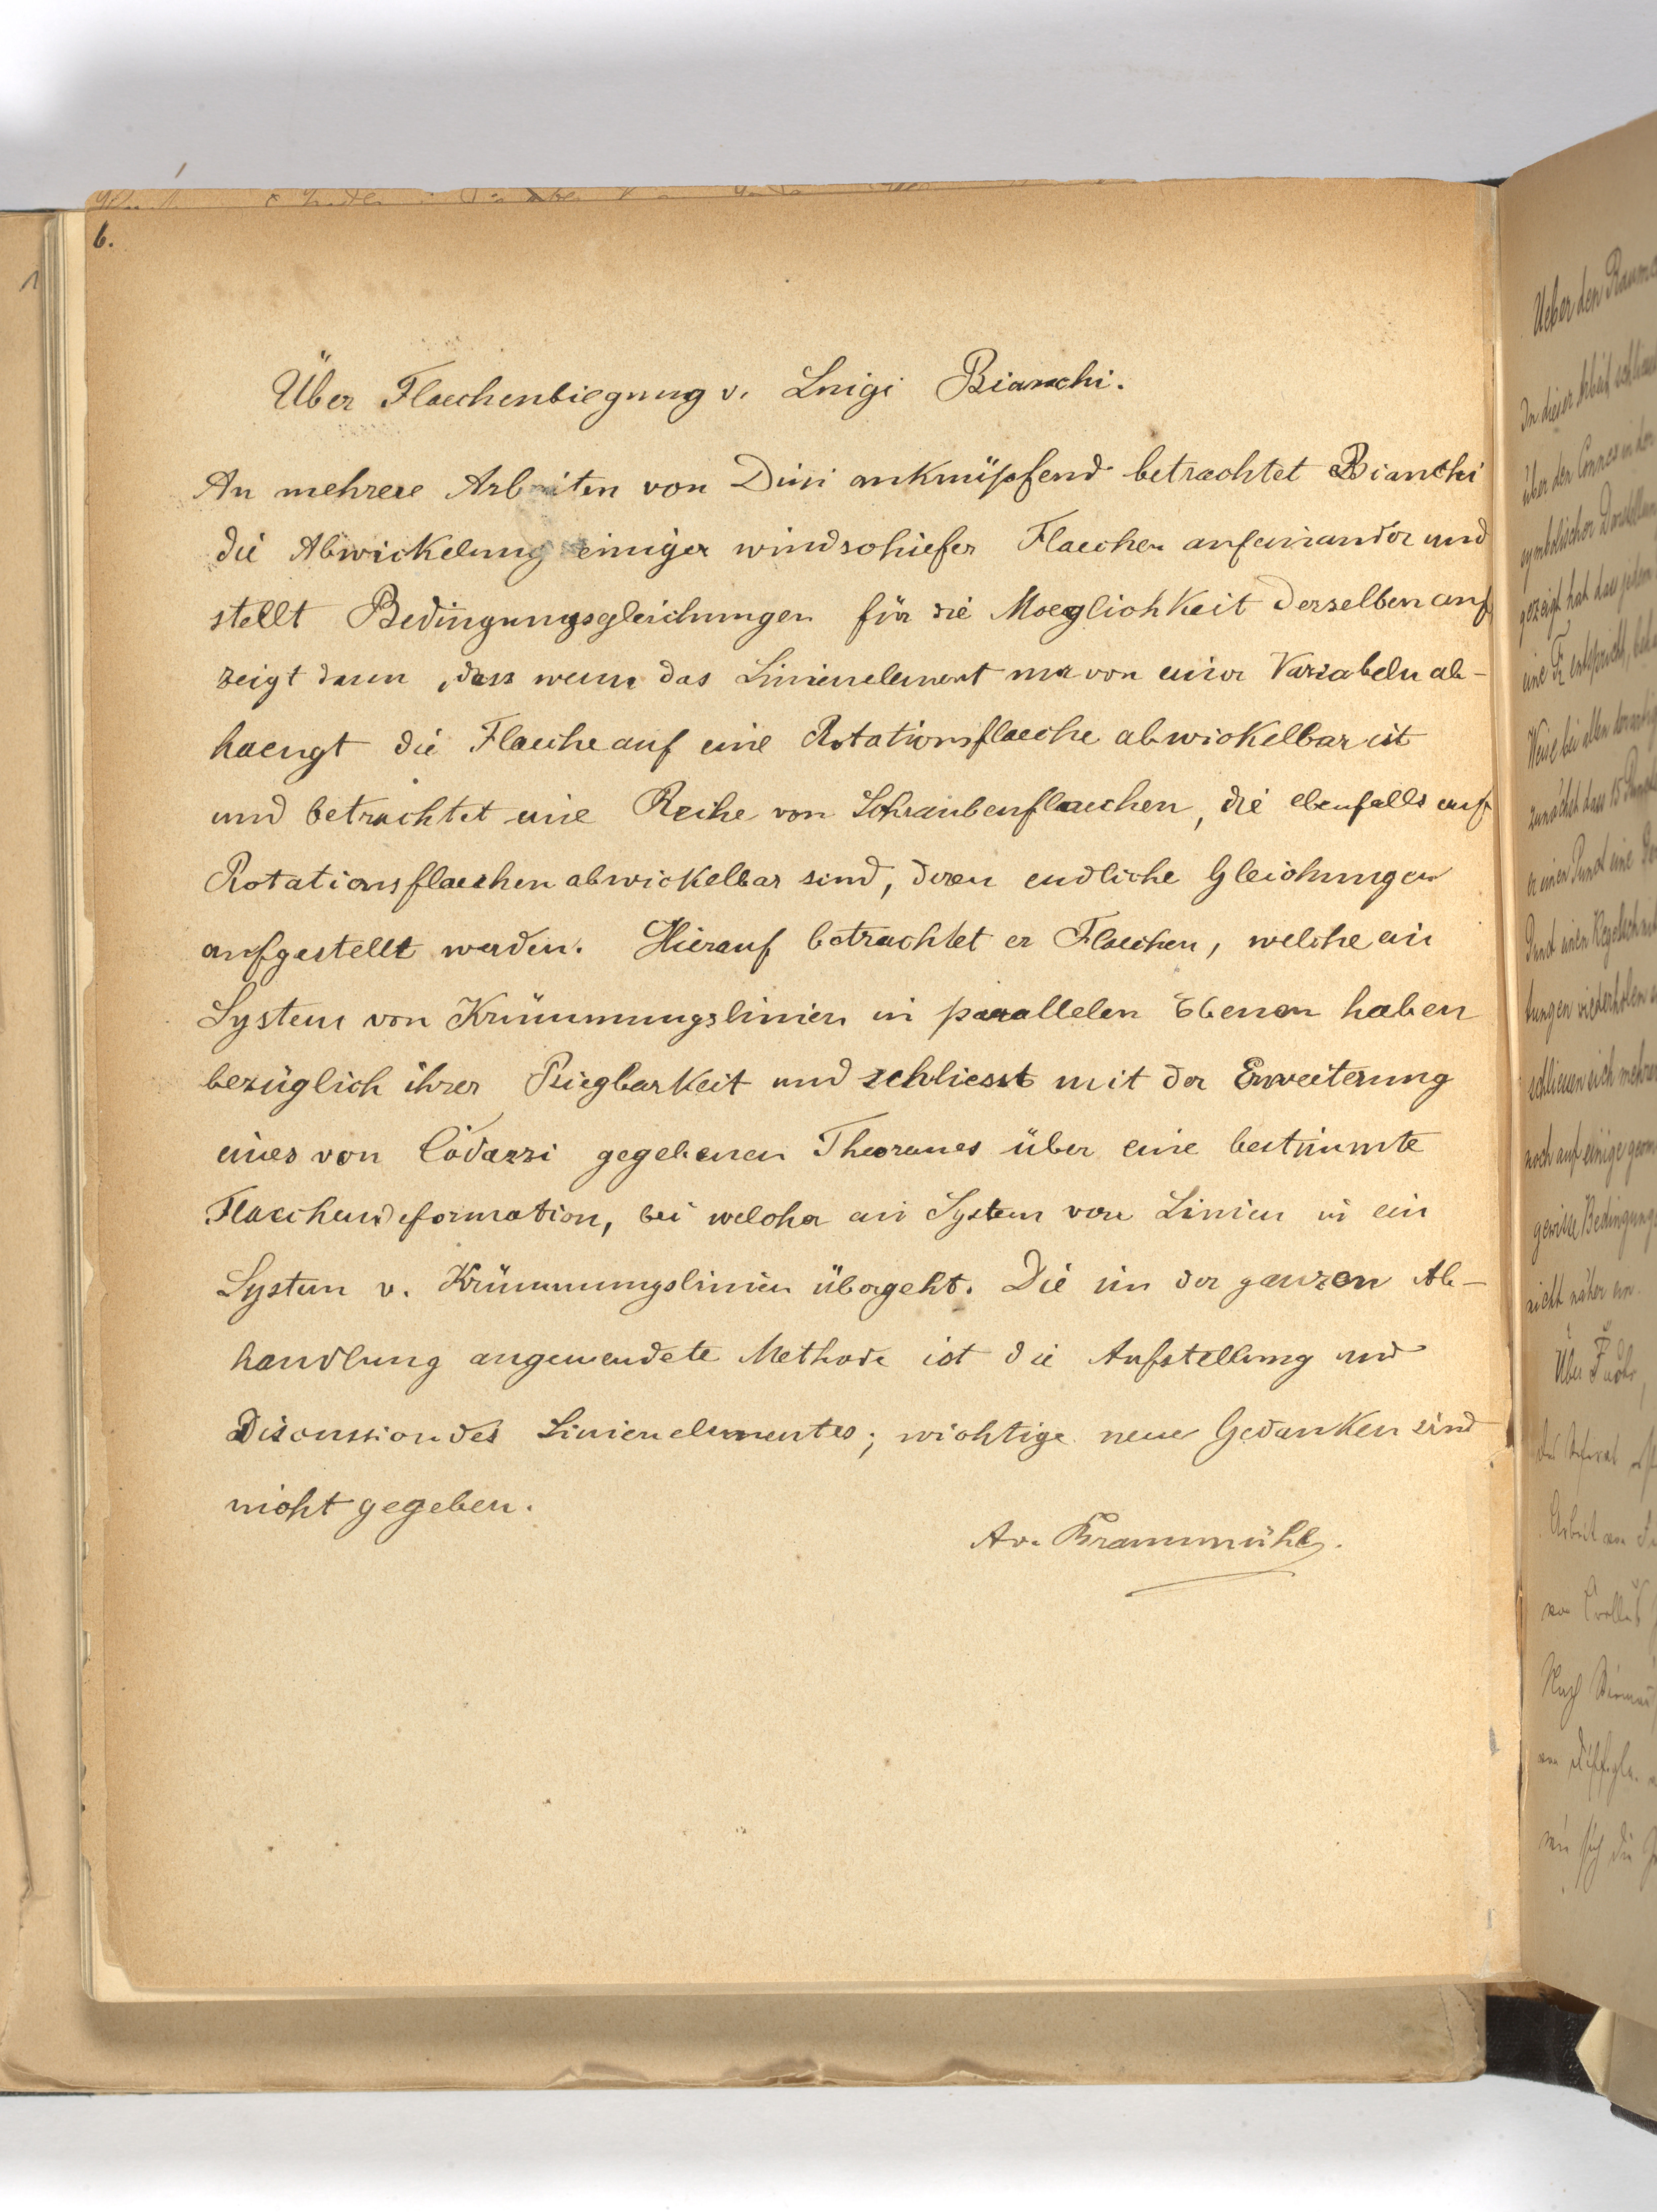 6.
Über Flaechenbiegung v. Luigi Bianchi.
An mehrere Arbeiten von Dini anknüpfend betrachtet Bianchi
die Abwickelung einiger windschiefer Flaechen aufeinander und
stellt Bedingungsgleichungen für die Moeglichkeit derselben auf
zeigt dann, dass wenn das Linienelement nur von einer Variabeln ab-
haengt die Flaeche auf eine Rotationsflaeche abwickelbar ist
und betrachtet eine Reihe von Schraubenflaechen, die ebenfalls auf
Rotationsflaechen abwickelbar sind, deren endliche Gleichungen
aufgestellt werden. Hierauf betrachtet er Flaechen, welche ein
System von Krümmungslinien in parallelen Ebenen haben
bezüglich ihrer Biegbarkeit und schliesst mit der Erweiterung
eines von Codazzi gegebenen Theoremes über eine bestimmte
Flaechendeformation, bei welcher ein System von Linien in ein
System v. Krümmungslinien übergeht. Die in der ganzen Ab-
handlung angewendete Methode ist die Aufstellung und
Discussion des Linienelementes; wichtige neue Gedanken sind
nicht gegeben.
Av. Braunmühl.
Ueber den
In dieser Arbeit
über den Connex in der
symbolischer
gezeigt hat dass jedem
eine
Weise bei allen
zunächst dass 15
er einen Punct eine
Punct einen Kegelschnitt
tungen
schliessen sich mehrere
noch auf einige
gewisse
nicht näher ein.
Über